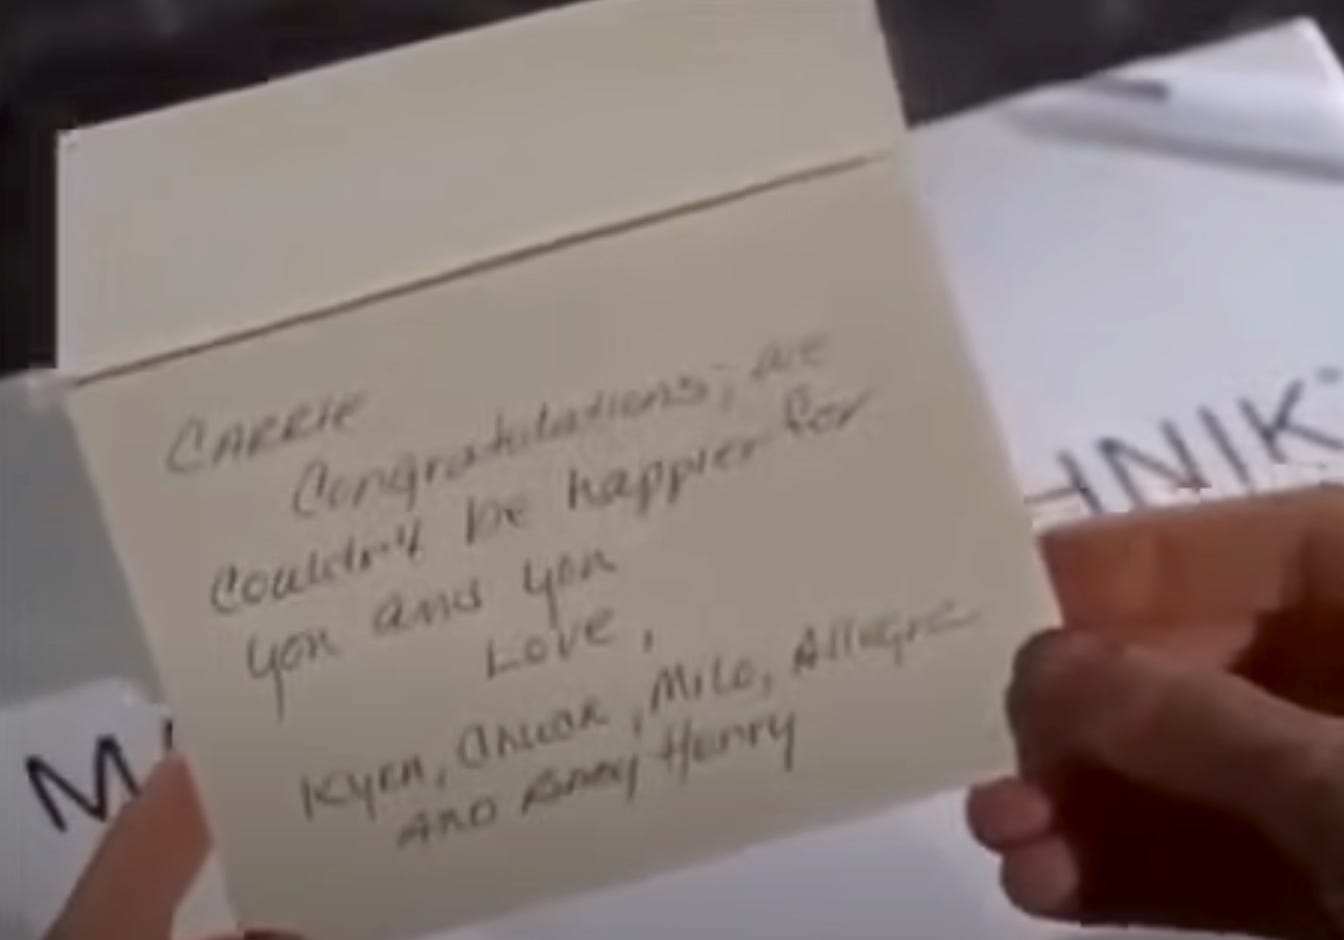 CARRIE
Congratulations, we
couldn't be happier for
you and you
Love,
Kyra, Chuck, Milo, Allegra
AND Baby Henry
M
HNIK